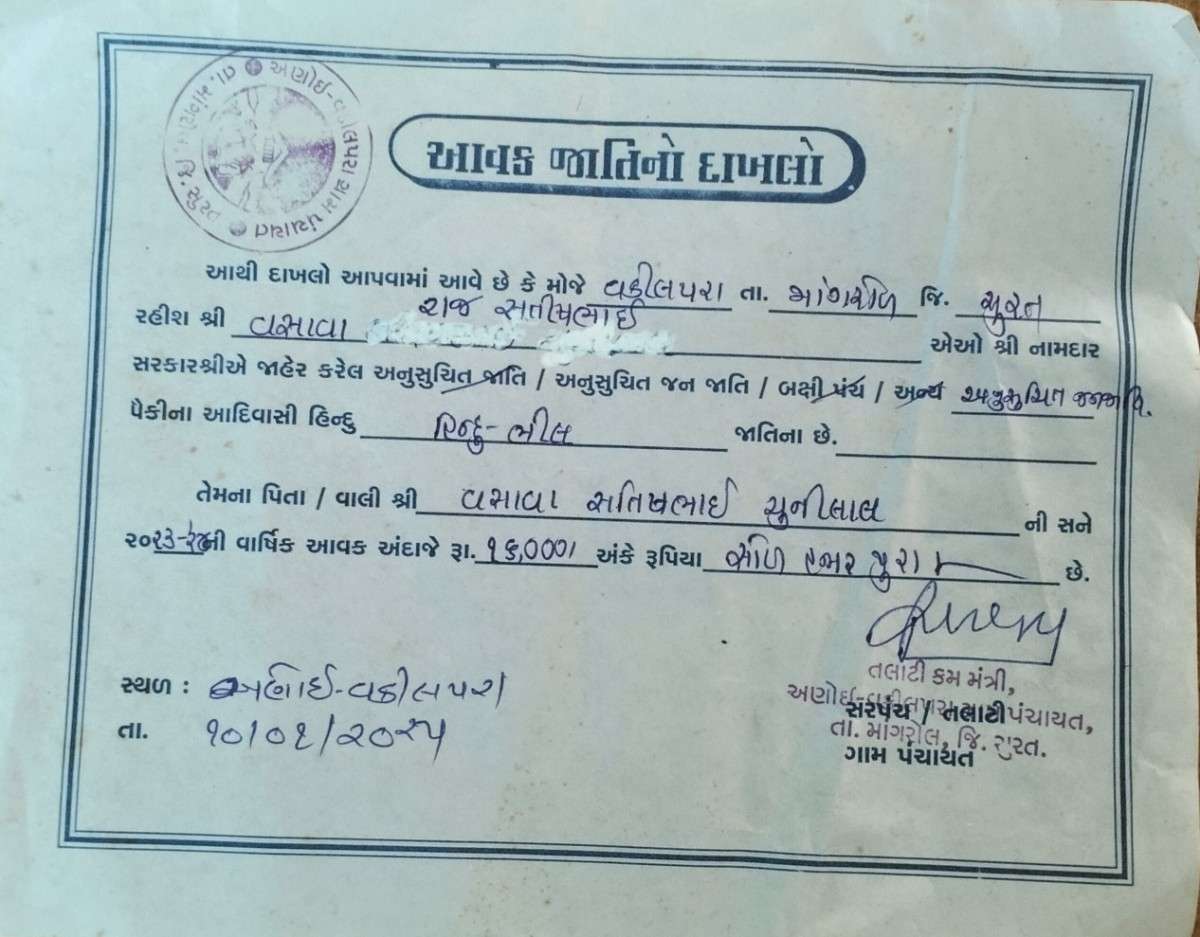 અણોઈ-વકીલપરા ગ્રામ પંચાયત તા. માંગરોળ જી. સુરત
આવક જાતિનો દાખલો
આથી દાખલો આપવામાં આવે છે કે મોજે વકીલપરા તા. માંગરોળ જિ. સુરત
રહીશ શ્રી વસાવા રાજ સતીષભાઈ એઓ શ્રી નામદાર
સરકારશ્રીએ જાહેર કરેલ અનુસુચિત જાતિ / અનુસુચિત જન જાતિ / બક્ષી પંચ / અન્ય અનુસુચિત જનજાતિ.
પૈકીના આદિવાસી હિન્દુ હિન્દુ-ભીલ જાતિના છે.
તેમના પિતા / વાલી શ્રી વસાવા સતિષભાઈ ચુનીલાલ ની સને
૨૦૨૩-૨૪ની વાર્ષિક આવક અંદાજે રૂા. ૧૬,૦૦૦/ અંકે રૂપિયા સોળ હજાર પુરા છે.
તલાટી કમ મંત્રી,
સ્થળ : અણોઈ-વકીલપરા
અણોઈ-વકીલપરા પંચાયત,
સરપંચ / તલાટી
તા. ૧૦/૦૧/૨૦૨૫
તા. માંગરોલ, જિ. સુરત.
ગામ પંચાયત